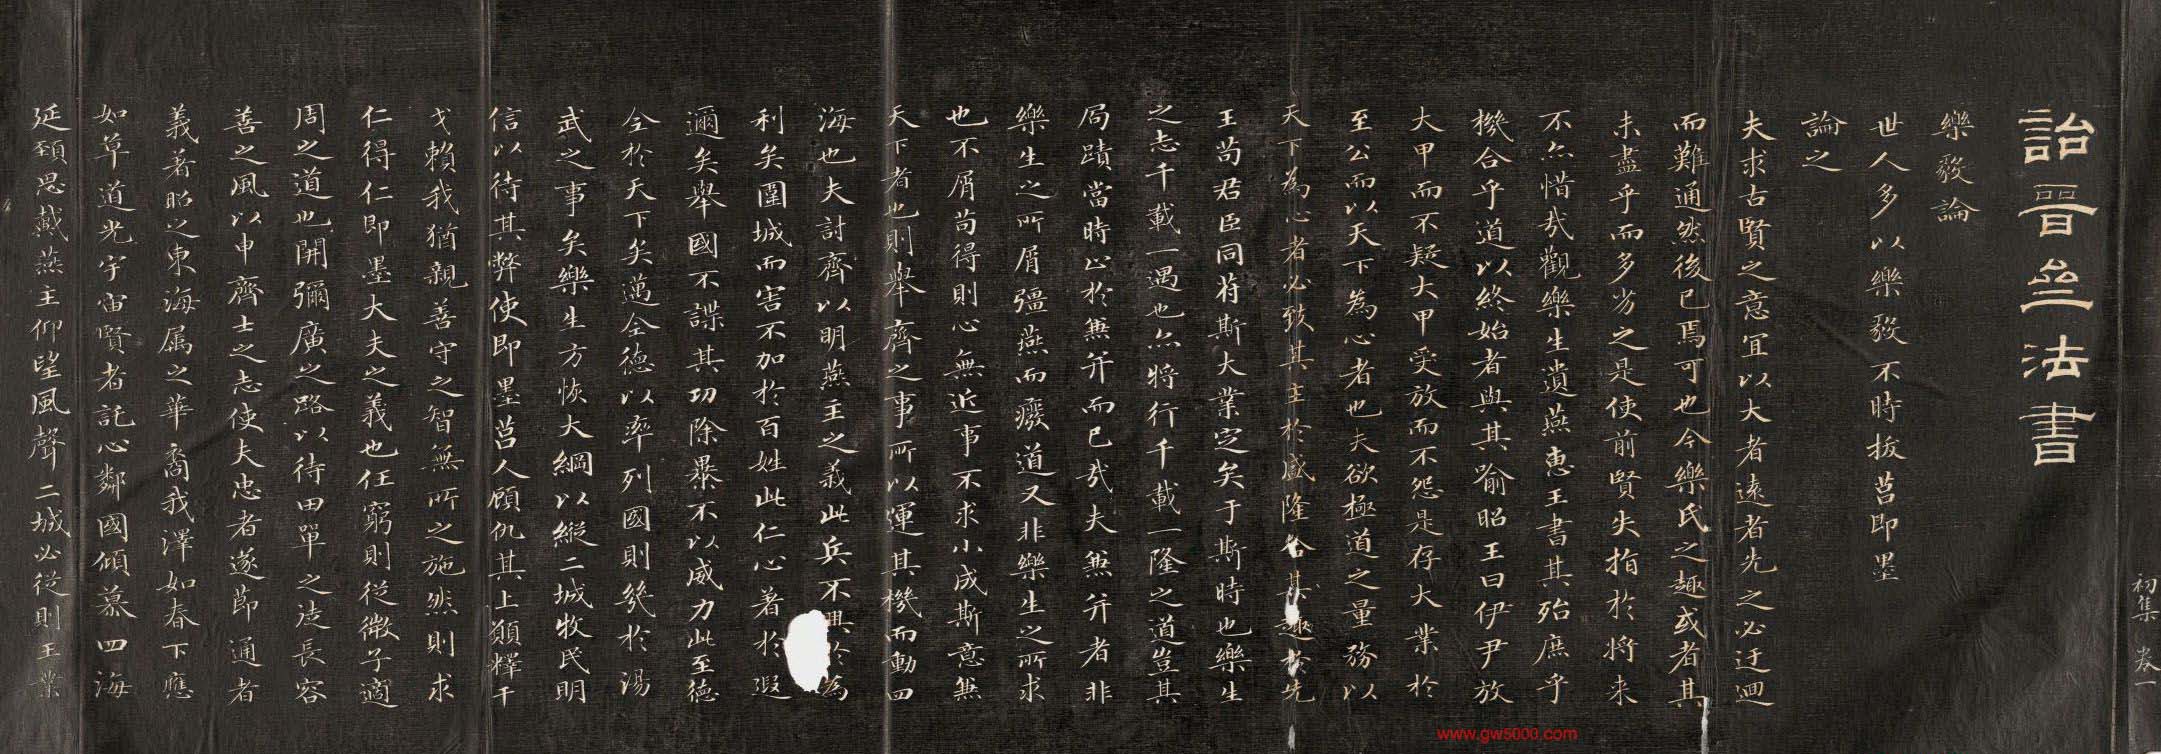 詒晉叁法書
樂毅論
世人多以樂毅不時拔莒即墨
論之
夫求古賢之意宜以大者遠者先之必迂迴
而難通然後已焉可也今樂氏之趣或者其
未盡乎而多劣之是使前賢失指於將來
不亦惜哉觀樂生遺燕惠王書其殆庶乎
機合乎道以終始者與其喻昭王曰伊尹放
大甲而不疑大甲受放而不怨是存大業於
至公而以天下為心者也夫欲極道之量務以
天下為心者必致其主於盛隆合其趣於先
王苟君臣同符斯大業定矣于斯時也樂生
之志千載一遇也亦將行千載一隆之道豈其
局蹟當時止於兼并而已哉夫兼并者非
樂生之所屑彊燕而癈道又非樂生之所求
也不屑苟得則心無近事不求小成斯意兼
天下者也則舉齊之事所以運其機而動四
海也夫討齊以明燕主之義此兵不興於為
利矣圍城而害不加於百姓此仁心著於遐
邇矣舉國不謀其功除暴不以威力此至德
全於天下矣邁全德以率列國則幾於湯
武之事矣樂生方恢大綱以縱二城牧民明
信以待其弊使即墨莒人顧仇其上願釋干
戈賴我猶親善守之智無所之施然則求
仁得仁即墨大夫之義也任窮則從微子適
周之道也開彌廣之路以待田單之徒長容
善之風以申齊士之志使夫忠者遂節通者
義著昭之東海屬之華裔我澤如春下應
如草道光宇宙賢者託心鄰國傾慕四海
延頚思戴燕主仰望風聲二城必從則王業
初集 卷一
www.gw5000.com